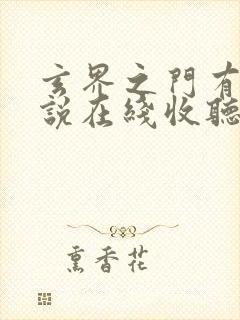 玄界之門有
說在綫收聽
熏香花